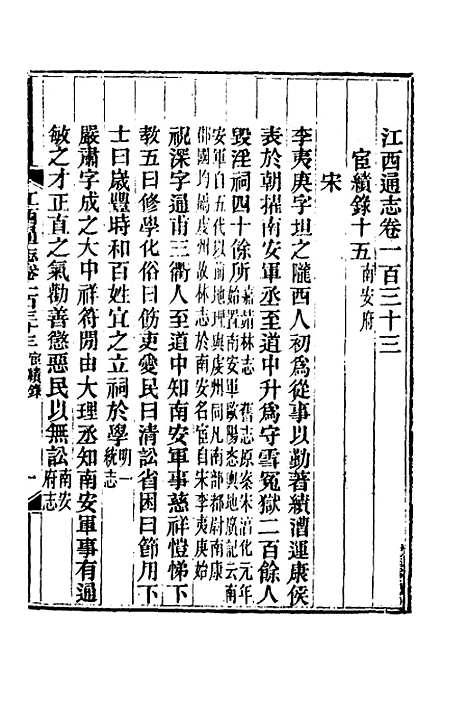 江西通志卷一百三十三
宦績錄十五南安府
宋
李夷庚字坦之隴西人初為從事以勤著績漕運康侯
表於朝擢南安軍丞至道中升為守雪冤獄二百餘人
毀淫祠四十餘所嘉靖林志 舊志原案宋淳化元年
始置南安軍歐陽忞輿地廣記云南
安軍自五代以前地理與虔州同凡南部都尉南康
郡國均屬虔州故林志於南安名宦自宋李夷庚始
祝深字通甫三衢人至道中知南安軍事慈祥愷悌下
教五曰修學化俗曰飭吏愛民曰清訟省囚曰節用下
士曰歲豐時和百姓宜之立祠於學明一
統志
嚴肅字成之大中祥符間由大理丞知南安軍事有通
敏之才正直之氣勸善懲惡民以無訟南安
府志
江西通志卷一百三十三 宦績錄 一